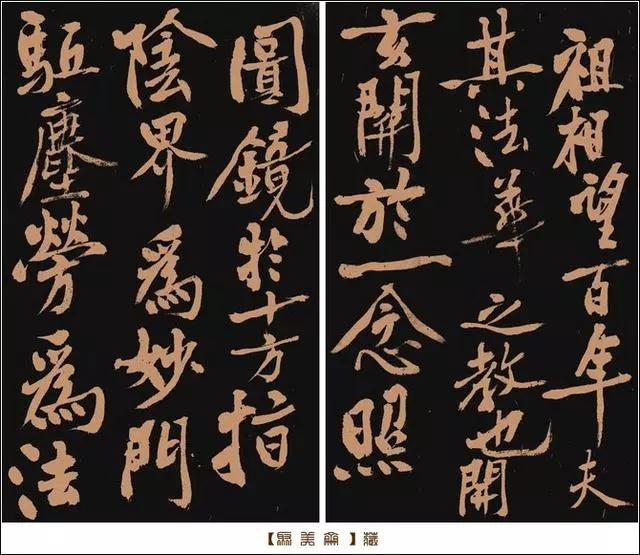 祖相望百年夫
其法華之教也開
玄關於一念照
圓鏡於十方指
陰界爲妙門
駈塵勞爲法